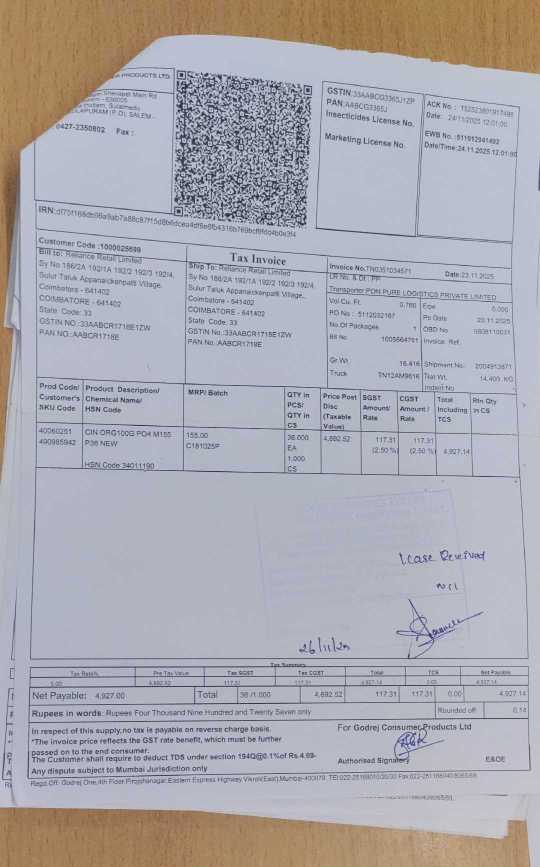 PRODUCTS LTD.
Shevapet Main Rd
- 636005
APURAM (P.O), SALEM -
0427-2350802 Fax :
GSTIN :33AABCG3365J1ZP
PAN :AABCG3365J
Insecticides License No.
Marketing License No.
ACK No. :
Date: 24/11/2025 12:01:00
EWB No. :511912941492
Date/Time:24.11.2025 12:01:00
Customer Code :1000025699
Bill to: Reliance Retail Limited
Sy No 186/2A 192/1A 192/2 192/3 192/4,
Sulur Taluk Appanaickenpatti Village,
Coimbatore - 641402
COIMBATORE - 641402
State Code: 33
GSTIN NO :33AABCR1718E1ZW
PAN NO.:AABCR1718E
Tax Invoice
Ship To: Reliance Retail Limited
Sy No 186/2A 192/1A 192/2 192/3 192/4,
Sulur Taluk Appanaickenpatti Village,
Coimbatore - 641402
COIMBATORE - 641402
State Code: 33
GSTIN No.:33AABCR1718E1ZW
PAN No.:AABCR1718E
Invoice No.TN0351034571 Date:23.11.2025
LR No. & Dt : PP
Transporter PON PURE LOGISTICS PRIVATE LIMITED
Vol Cu. Ft. 0.760 0.000
PO No : 5112032167 Po Date 20.11.2025
No.Of Packages 1 OBD No 9808110031
Bil No 1005664701 Invoice Ref.
Gr.Wt. 16.416 Shipment No: 2004913871
Truck TN12AM9616 Net Wt. 14.400 KG
Indent No
Prod Code/ Customer's SKU Code
Product Description/ Chemical Name/ HSN Code
MRP/ Batch
QTY in PCS/ QTY in CS
Price Post Disc (Taxable Value)
SGST Amount/ Rate
CGST Amount / Rate
Total Including TCS
Rtn Qty in CS
40060251 CIN ORG100G PO4 M155 155.00 36.000 4,692.52 117.31 117.31
490985942 P36 NEW C181025P EA (2.50 %) (2.50 %) 4,927.14
1.000
HSN Code 34011190 CS
1case Received
26/11/25
Tax Summary
Tax Rate% Pre Tax Value Tax SGST Tax CGST Total TCS Net Payable
5.00 4,692.52 117.31 117.31 4,927.14 0.00 4,927.14
Net Payable: 4,927.00 Total 36 /1.000 4,692.52 117.31 117.31 0.00 4,927.14
Rupees in words: Rupees Four Thousand Nine Hundred and Twenty Seven only Rounded off: 0.14
In respect of this supply,no tax is payable on reverse charge basis.
"The invoice price reflects the GST rate benefit, which must be further
passed on to the end consumer.
The Customer shall require to deduct TDS under section 194Q@0.1%of Rs.4.69-
Any dispute subject to Mumbai Jurisdiction only
For Godrej Consumer Products Ltd
Authorised Signatory E&OE
Regd.Off: Godrej One,4th Floor,Pirojshanagar,Eastern Express Highway,Vikroli(East),Mumbai-400079.